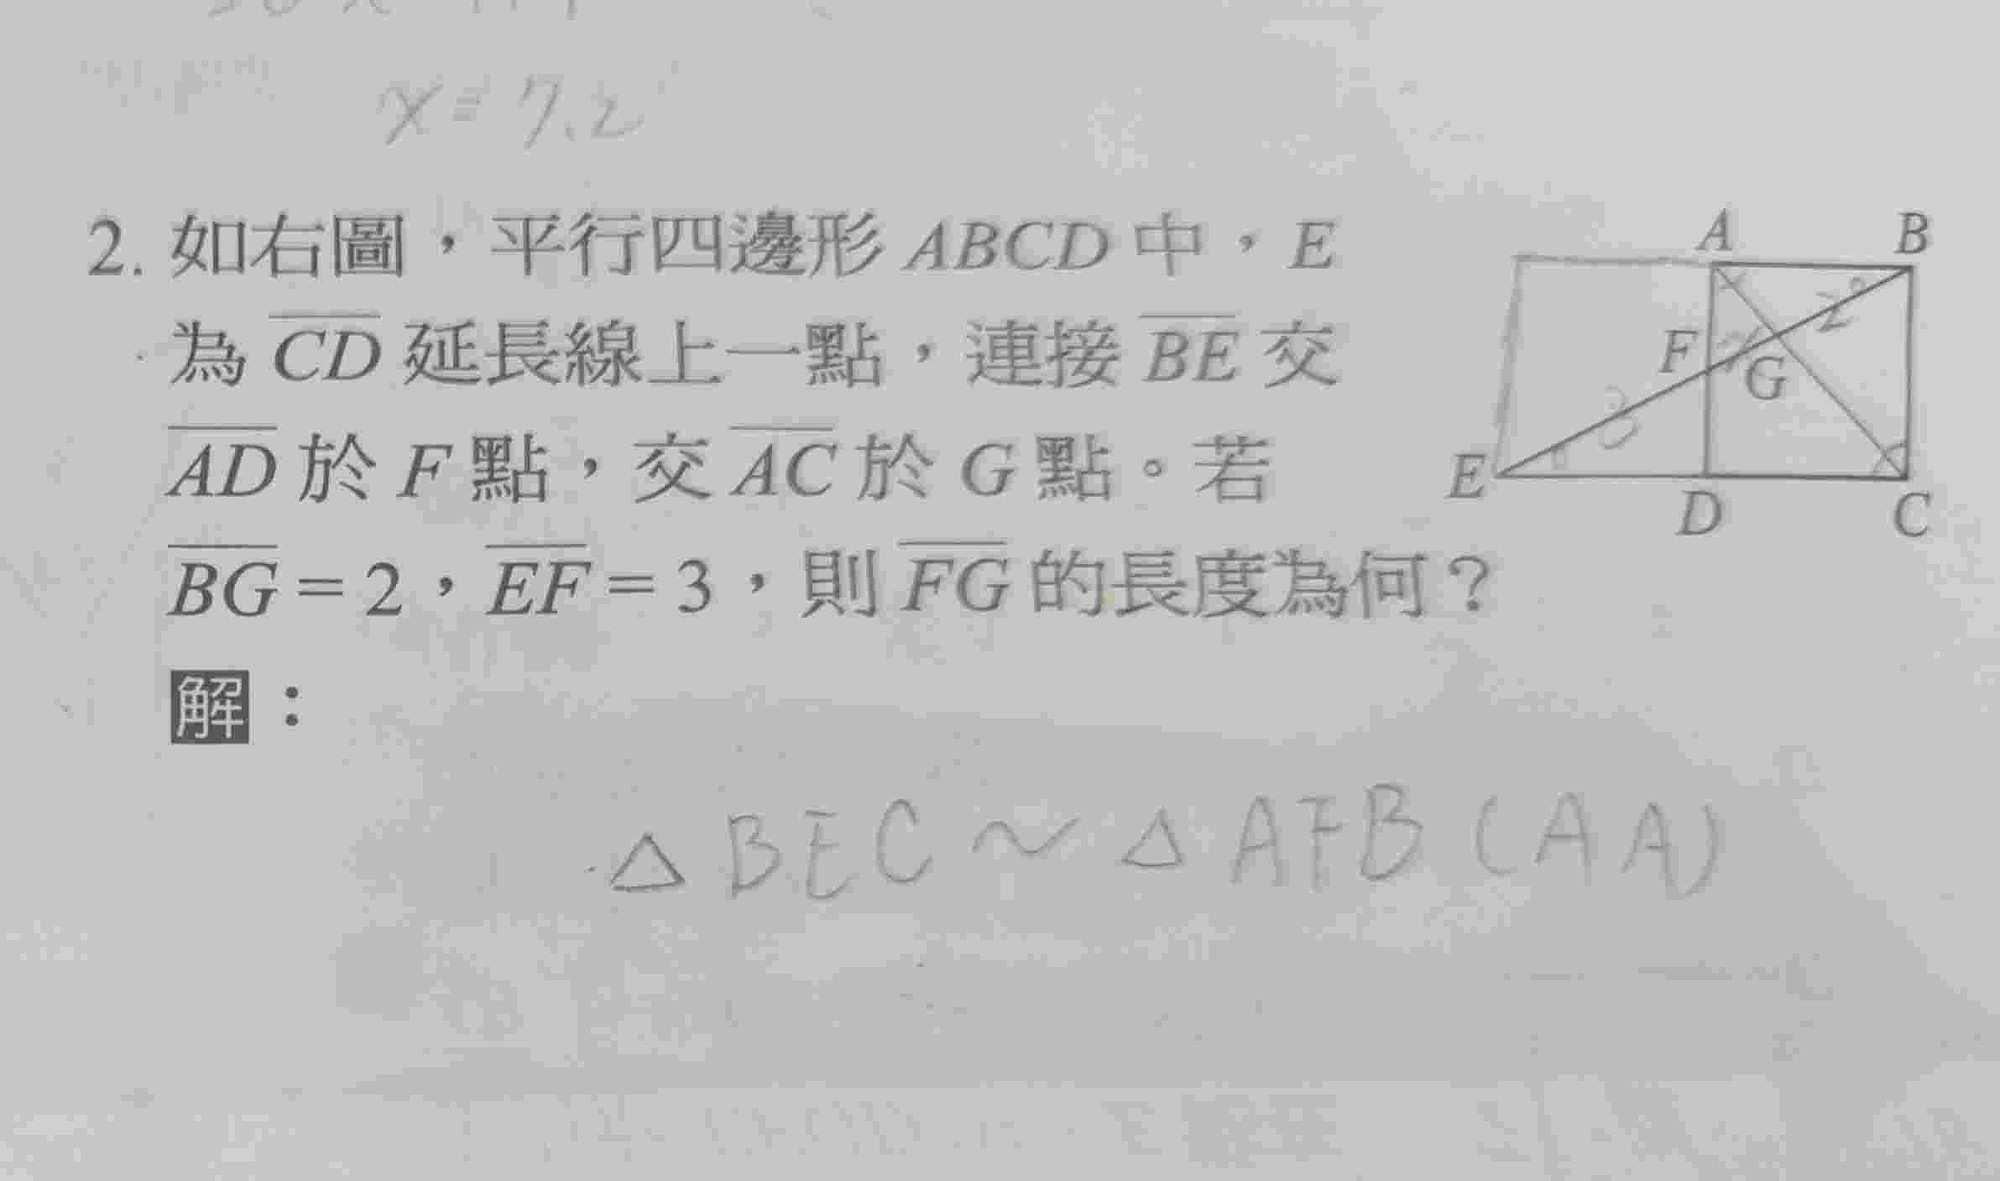 x=7.2
2. 如右圖，平行四邊形 ABCD 中，E
為 CD 延長線上一點，連接 BE 交
AD 於 F 點，交 AC 於 G 點。若
BG = 2，EF = 3，則 FG 的長度為何？
解：
A B
2
F G
3
E D C
△ BEC ~ △ AFB (AA)